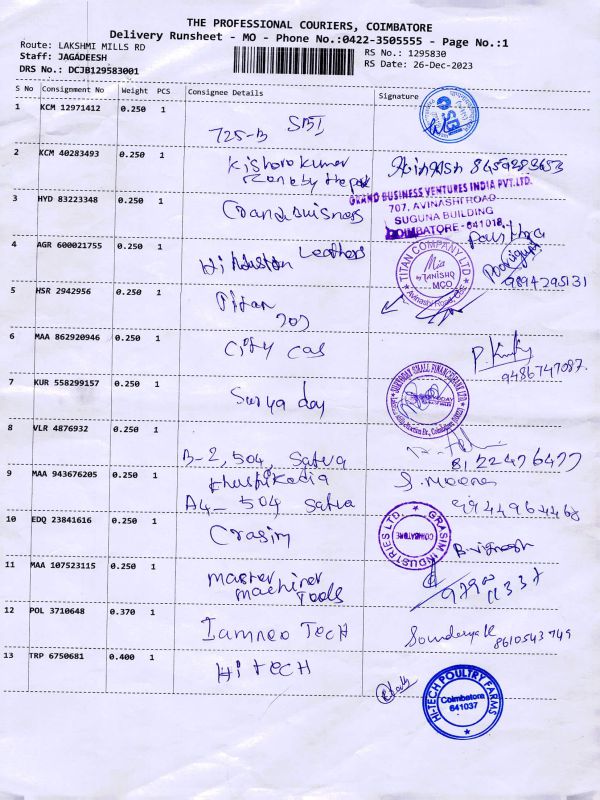 THE PROFESSIONAL COURIERS, COIMBATORE
Delivery Runsheet - MO - Phone No.:0422-3505555 - Page No.:1
Route: LAKSHMI MILLS RD
RS No.: 1295830
Staff: JAGADEESH
RS Date: 26-Dec-2023
DRS No.: DCJB129583001
S No Consignment No Weight PCS Consignee Details Signature
1 KCM 12971412 0.250 1
725-B SBI
2 KCM 40283493 0.250 1
Kishorekumar
8457283653
GRAND BUSINESS VENTURES INDIA PVT.LTD.
707, AVINASHI ROAD
SUGUNA BUILDING
COIMBATORE - 641018,
3 HYD 83223348 0.250 1
4 AGR 600021755 0.250 1
Leathers
TITAN COMPANY LTD
Mia
by TANISHQ
MCO
Avinashi Road, CBE
9894295131
5 HSR 2942956 0.250 1
Titan
707
6 MAA 862920946 0.250 1
City Cas
9486747087.
7 KUR 558299157 0.250 1
Surya day
SURYODAY SMALL FINANCE BANK LTD
8 VLR 4876932 0.250 1
B-2, 504, Satva
8122476477
9 MAA 943676205 0.250 1
A4- 504 Satva
S. Meena
9944964468
10 EDQ 23841616 0.250 1
Grasim
GRASIM INDUSTRIES LTD.
COIMBATORE
B. Vignesh
11 MAA 107523115 0.250 1
Master
Machiner
Tools
12 POL 3710648 0.370 1
Iamneo Tech
Soundarya K
8610543749
13 TRP 6750681 0.400 1
Hi TECH
HI-TECH POULTRY FARMS
Coimbatore
641037